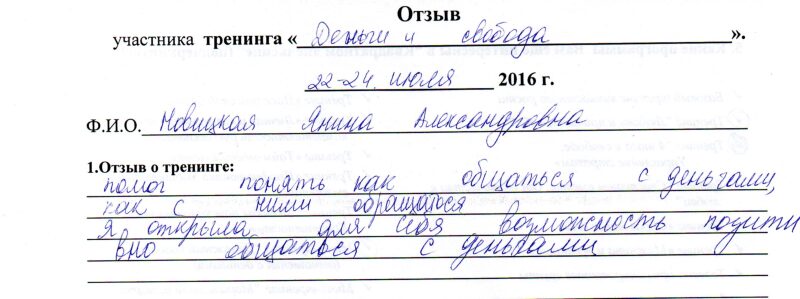 Отзыв
участника тренинга « Деньги и свобода ».
22-24 июля 2016 г.
Ф.И.О. Новицкая Янина Александровна
1.Отзыв о тренинге:
помог понять как общаться с деньгами,
как с ними обращаюся
Я открыла для себя возможность позити
вно общаться с деньгами